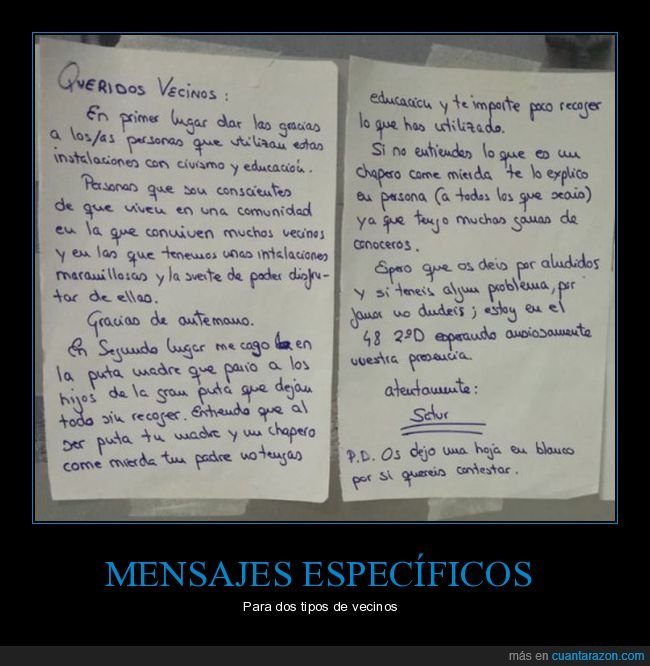 QUERIDOS VECINOS:
En primer lugar dar las gracias
a los/as personas que utilizan estas
instalaciones con civismo y educación.
Personas que son conscientes
de que viven en una comunidad
en la que conviven muchos vecinos
y en las que tenemos unas intalaciones
maravillosas y la suerte de poder disfru-
tar de ellas.
Gracias de antemano.
En Segundo lugar me cago en
la puta madre que pario a los
hijos de la gran puta que dejan
todo sin recoger. Entiendo que al
ser puta tu madre y un chapero
come mierda tu padre no tengas
educación y te importe poco recoger
lo que has utilizado.
Si no entiendes lo que es un
chapero come mierda te lo explico
en persona (a todos los que seais)
ya que tengo muchas ganas de
conoceros.
Epero que os deis por aludidos
y si teneis algun problema, por
favor no dudeis; estoy en el
48 2ºD esperando ansiosamente
vuestra presencia.
atentamente:
Satur
P.D. Os dejo una hoja en blanco
por si quereis contestar.
MENSAJES ESPECÍFICOS
Para dos tipos de vecinos
más en cuantarazon.com